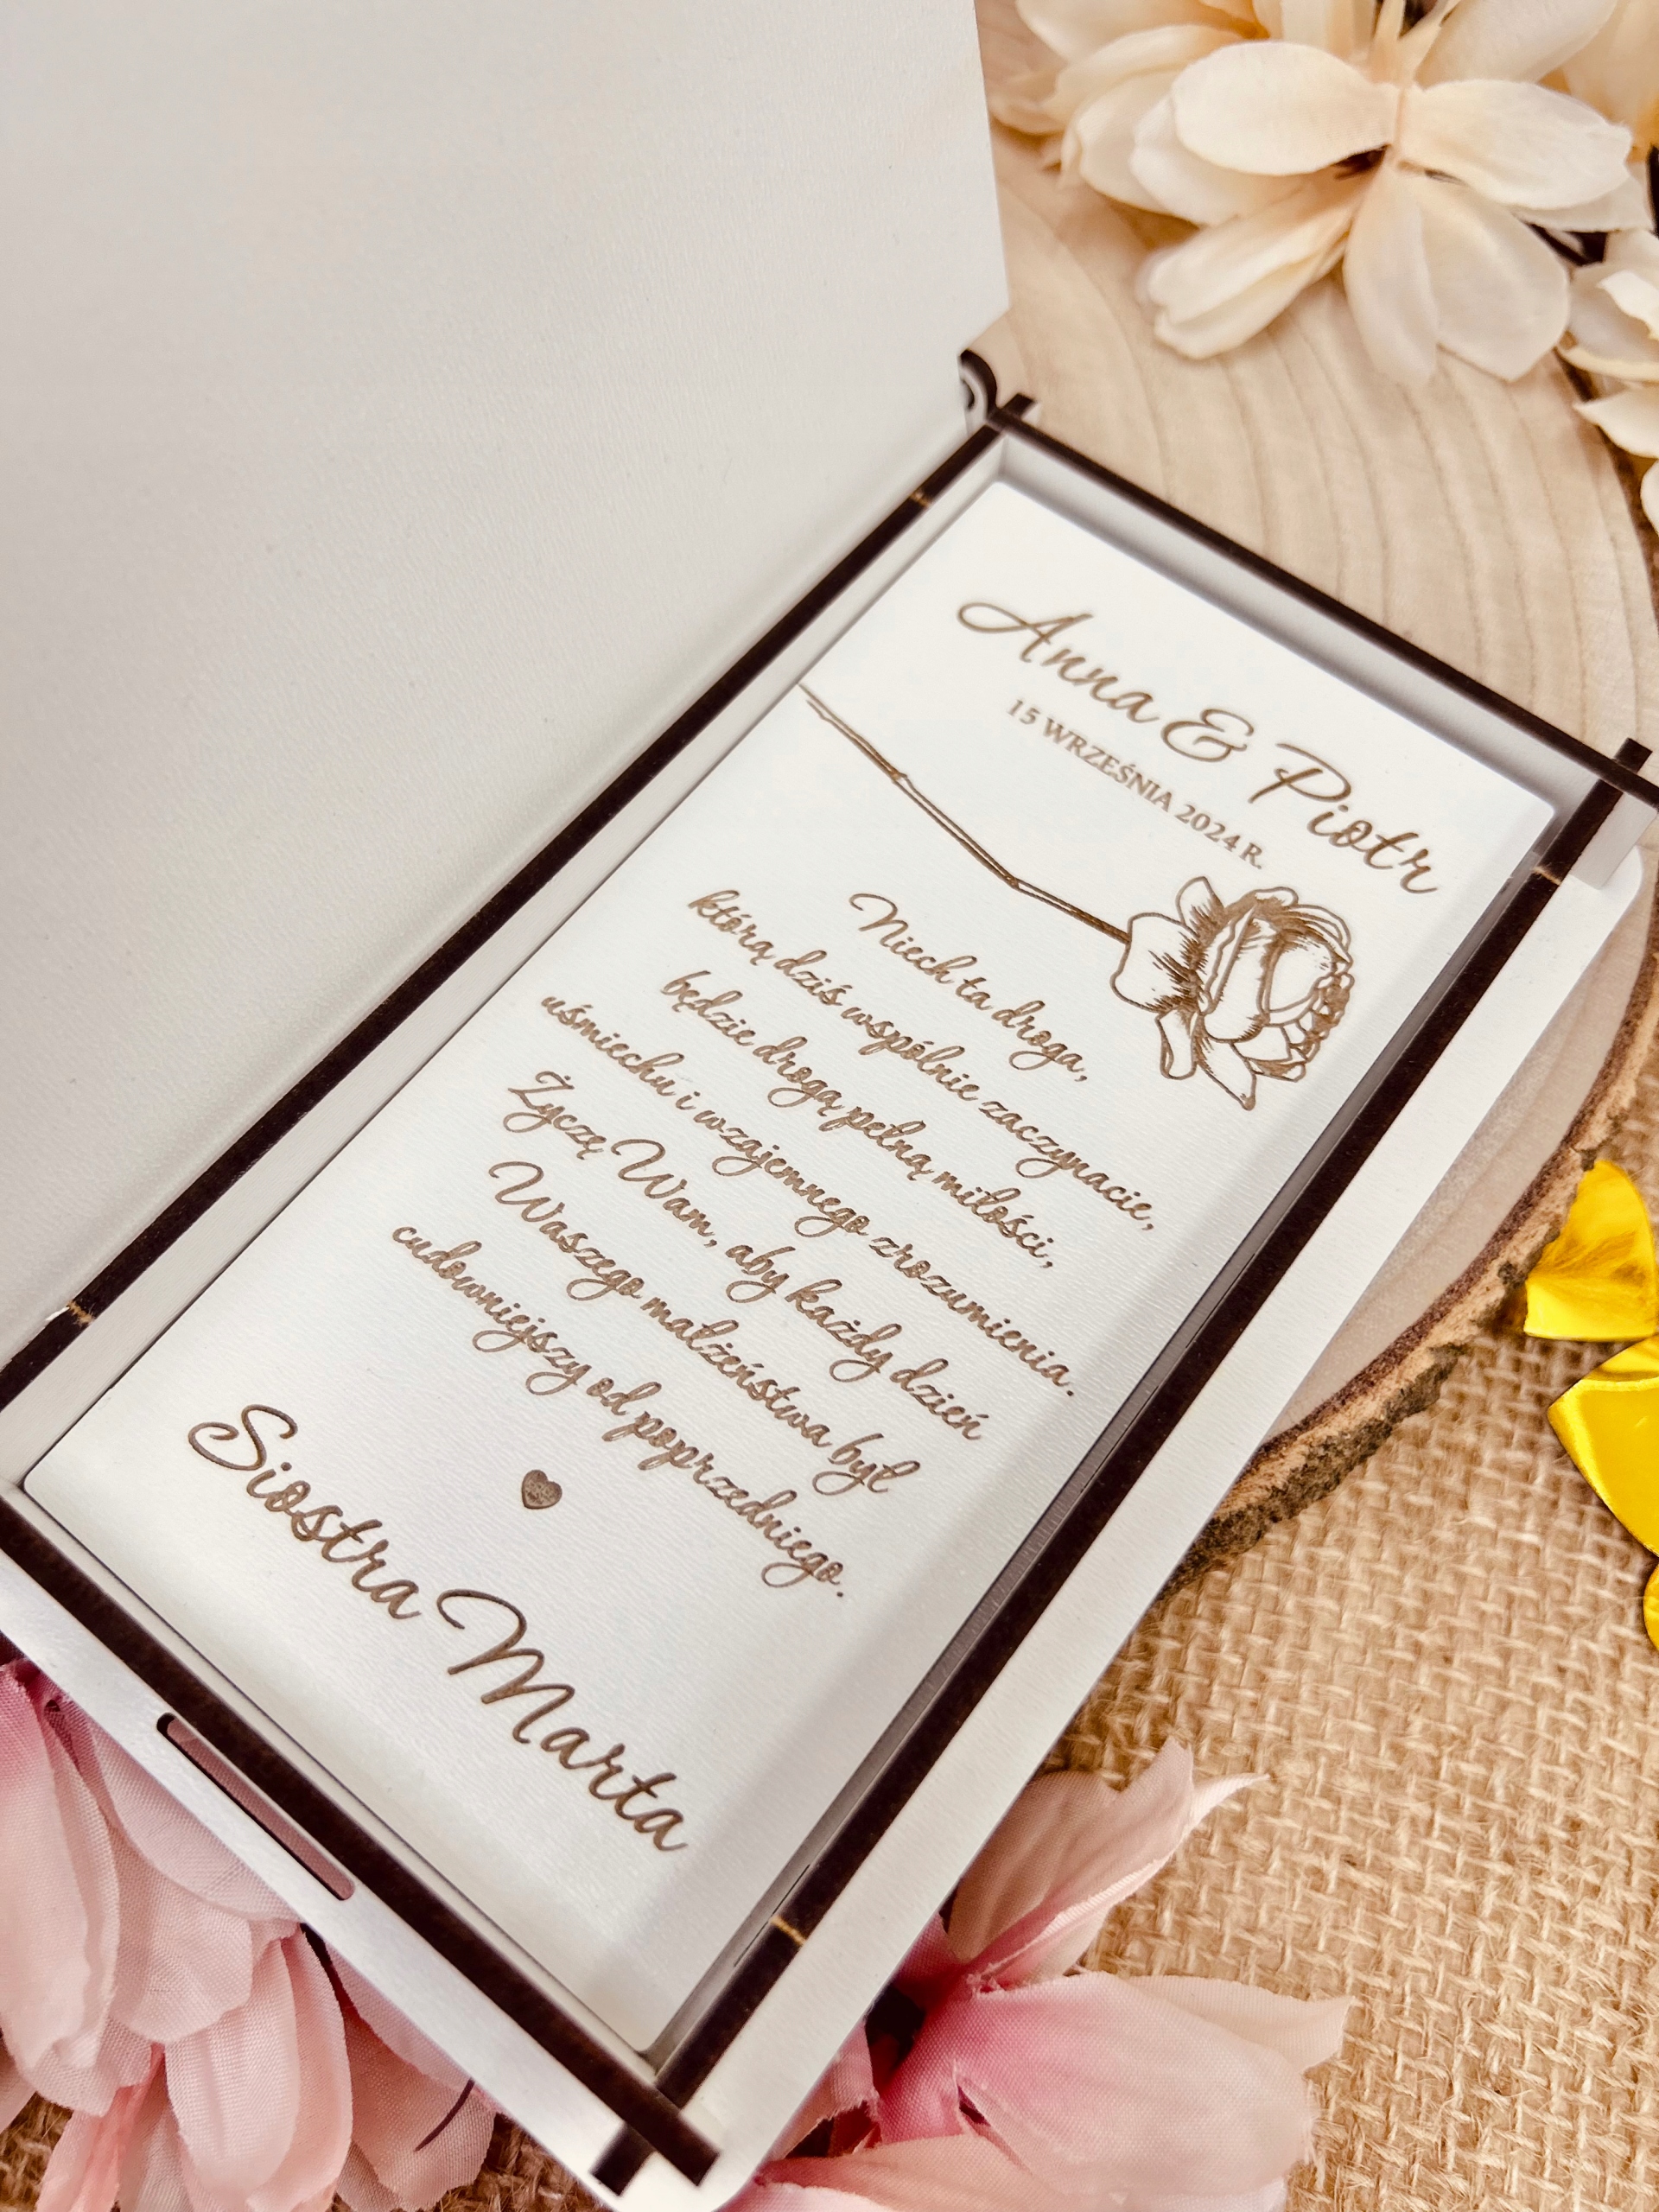 Anna & Piotr
15 WRZEŚNIA 2024 R.
Niech ta droga,
którą dziś wspólnie zaczynacie,
będzie drogą pełną miłości,
uśmiechu i wzajemnego zrozumienia.
Życzę Wam, aby każdy dzień
Waszego małżeństwa był
cudowniejszy od poprzedniego.
Siostra Marta